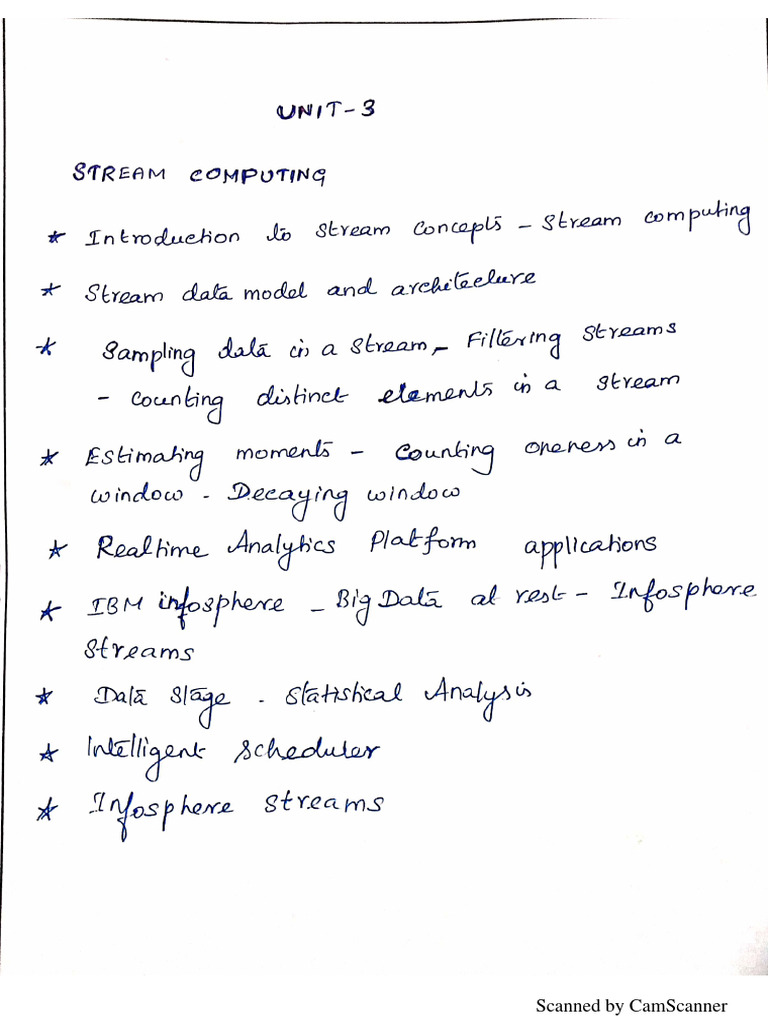 UNIT-3
STREAM COMPUTING
* Introduction to stream concepts - stream computing
* Stream data model and architecture
* Sampling data in a stream - Filtering streams
- counting distinct elements in a stream
* Estimating moments - counting oneness in a
window - Decaying window
* Realtime Analytics Platform applications
* IBM infosphere - Big Data at rest - Infosphere
streams
* Data stage - statistical Analysis
* Intelligent scheduler
* Infosphere streams
Scanned by CamScanner